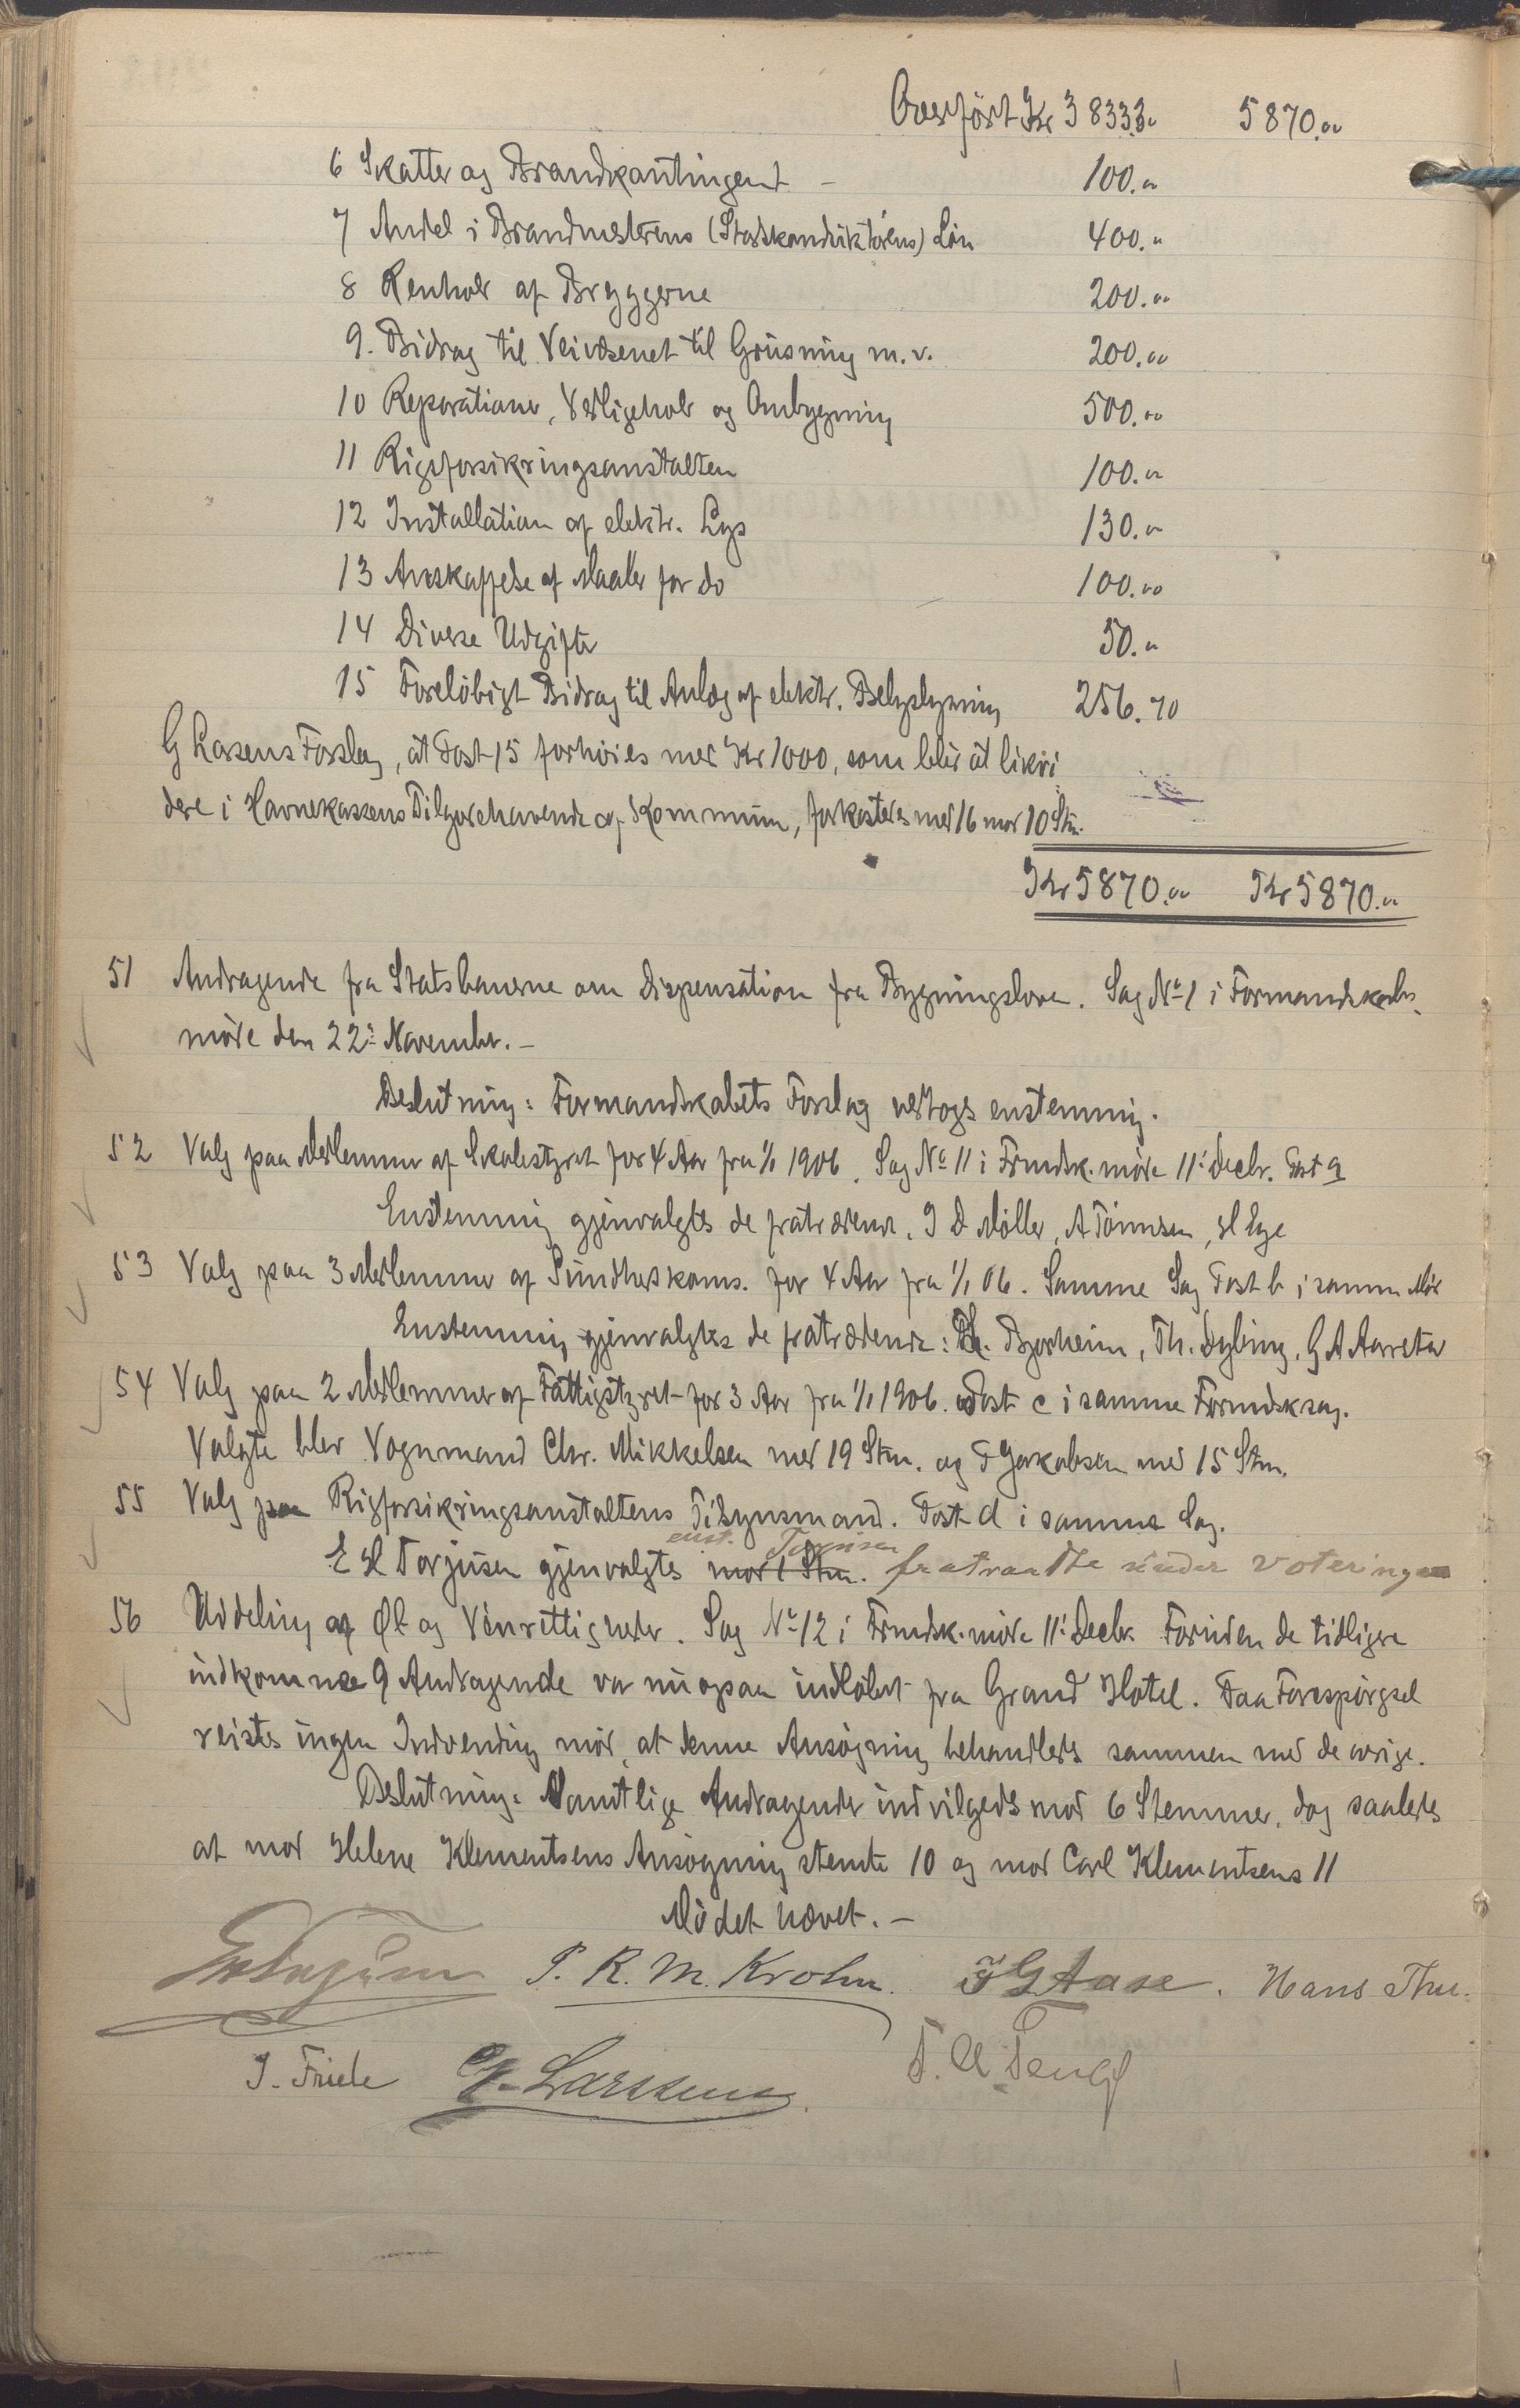 Overført Kr 3833.30 5870.00
6 Skatter og Brandkontingent - 100.00
7 Andel i Brandmesterens (Stadskonduktörens) Lön 400.00
8 Renhold af Bryggerne 200.00
9. Bidrag til Veivæsenet til Grusning m.v. 200.00
10 Reparationer, Vedligehold og Ombygning 500.00
11 Rigsforsikringsanstalten 100.00
12 Installation af elektr. Lys 130.00
13 Anskaffelse af Maaler for do 100.00
14 Diverse Udgifter 50.00
15 Foreløbigt Bidrag til Anlæg af elektr. Belysning 256.70
G Larsens Forslag, at Post 15 forhöies med Kr 1000, som blir at likvi
dere i Havnekassens Tilgodehavende af Kommunen, forkastedes med 16 mod 10 Stm.
Kr 5870.00 Kr 5870.00
51 Andragende fra Statsbanerne om Dispensation fra Bygningsloven. Sag No 1 i Formandskabs
möde den 22: November. -
Beslutning: Formandskabets Forslag vedtoges enstemmig.
52 Valg paa Medlemmer af Skolestyret for 4 Aar fra 1/1 1906. Sag No 11 i Frmdsk. möde 11' Decbr. Post a
Enstemmig gjenvalgtes de fratrædende, I D Möller, A Tönnesen, H Ege
53 Valg paa 3 Medlemmer af Sundhedskoms. for 4 Aar fra 1/1 06. Samme Sag Post b i samme Möde
Enstemmig gjenvalgtes de fratrædende: Bjorheim, Th. Dybing, G A Aarrestad
54 Valg paa 2 Medlemmer af Fattigstyret for 3 Aar fra 1/1 1906. Post c i samme Frmdsksag.
Valgte blev Vognmand Chr. Mikkelsen med 19 Stm. og T Jakobsen med 15 Stm.
55 Valg paa Rigsforsikringsanstaltens Tilsynsmand. Post d i samme Sag.
enst. Torjusen
E H Torjusen gjenvalgtes mod 1 Stm. fratraadte under Voteringen
56 Uddeling af Øl og Vinrettigheder. Sag No 12 i Frmdsk. möde 11' Decbr. Foruden de tidligere
indkomne 9 Andragende var nu ogsaa indlöbet fra Grand Hotel. Paa Forespörgsel
reistes ingen Indvending mod, at denne Ansögning behandledes sammen med de övrige.
Beslutning: Samtlige Andragender indvilgedes mod 6 Stemmer, dog saaledes
at mod Helene Klementsens Ansögning stemte 10 og mod Carl Klementsens 11
Mödet hævet. -
P. R. M. Krohn. G Aase. Hans Thu.
J. Friele G. Larssen